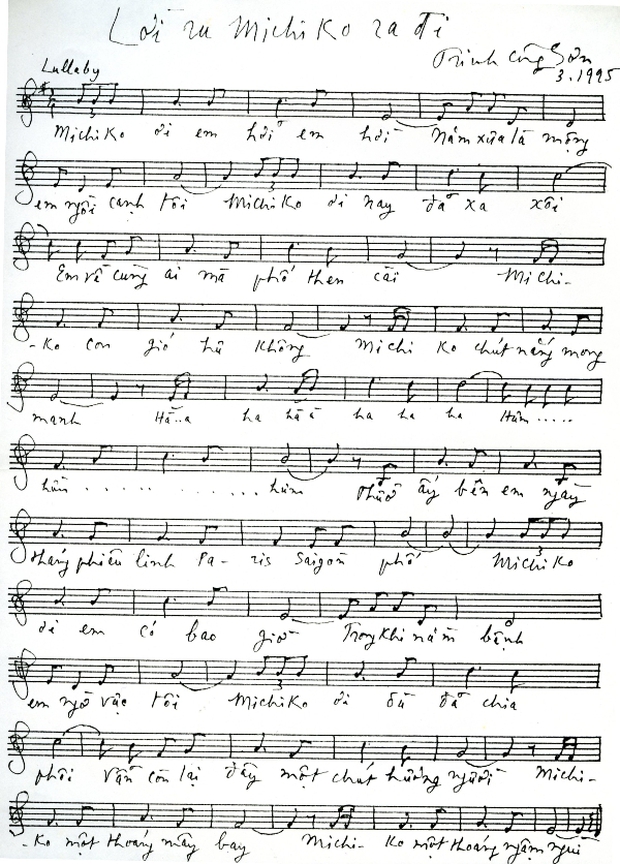 Lời ru Michiko ra đi
Trịnh Công Sơn
3.1995
Lullaby
Michiko ơi em hỡi em hỡi Nằm xưa là mộng
em ngồi cạnh tôi Michiko ơi nay đã xa xôi
Em về cùng ai mà phố then cài Michi-
-Ko con gió hư không Michi Ko chút nắng mong
manh Hà..a ha hà à ha ha ha Hùm .....
hùm ............ hùm Thuở ấy bên em ngày
tháng phiêu linh Pa-ris Saigon phố Michiko
ơi em có bao giờ Trong khi nằm bệnh
em ngờ vực tôi Michiko ơi dù đã chia
phôi Vẫn còn lại đây một chút hương người Michi-
-Ko một thoáng mây bay Michi-Ko một thoáng ngậm ngùi